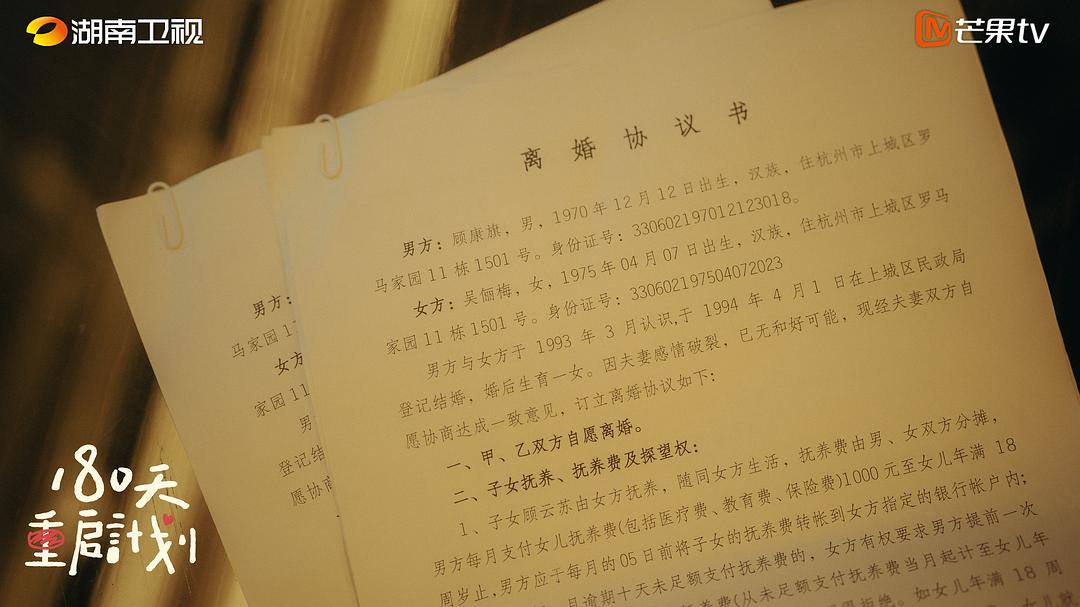 湖南卫视
芒果tv
离婚协议书
男方：顾康旗，男，1970年12月12日出生，汉族，住杭州市上城区罗
马家园11栋1501号。身份证号：330602197012123018。
女方：吴俪梅，女，1975年04月07日出生，汉族，住杭州市上城区罗马
家园11栋1501号。身份证号：330602197504072023
男方与女方于1993年3月认识,于1994年4月1日在上城区民政局
登记结婚，婚后生育一女。因夫妻感情破裂，已无和好可能，现经夫妻双方自
愿协商达成一致意见，订立离婚协议如下：
一、甲、乙双方自愿离婚。
二、子女抚养、抚养费及探望权：
1、子女顾云苏由女方抚养，随同女方生活，抚养费由男、女双方分摊，
男方每月支付女儿抚养费(包括医疗费、教育费、保险费)1000元至女儿年满18
周岁止,男方应于每月的05日前将子女的抚养费转帐到女方指定的银行帐户内；
月逾期十天未足额支付抚养费的，女方有权要求男方提前一次
抚养费(从未足额支付抚养费当月起计至女儿年
拒绝。如女儿年满18周
男方：
马家园1
女方
家园11
男
登记结
愿协商
180天
重启計划